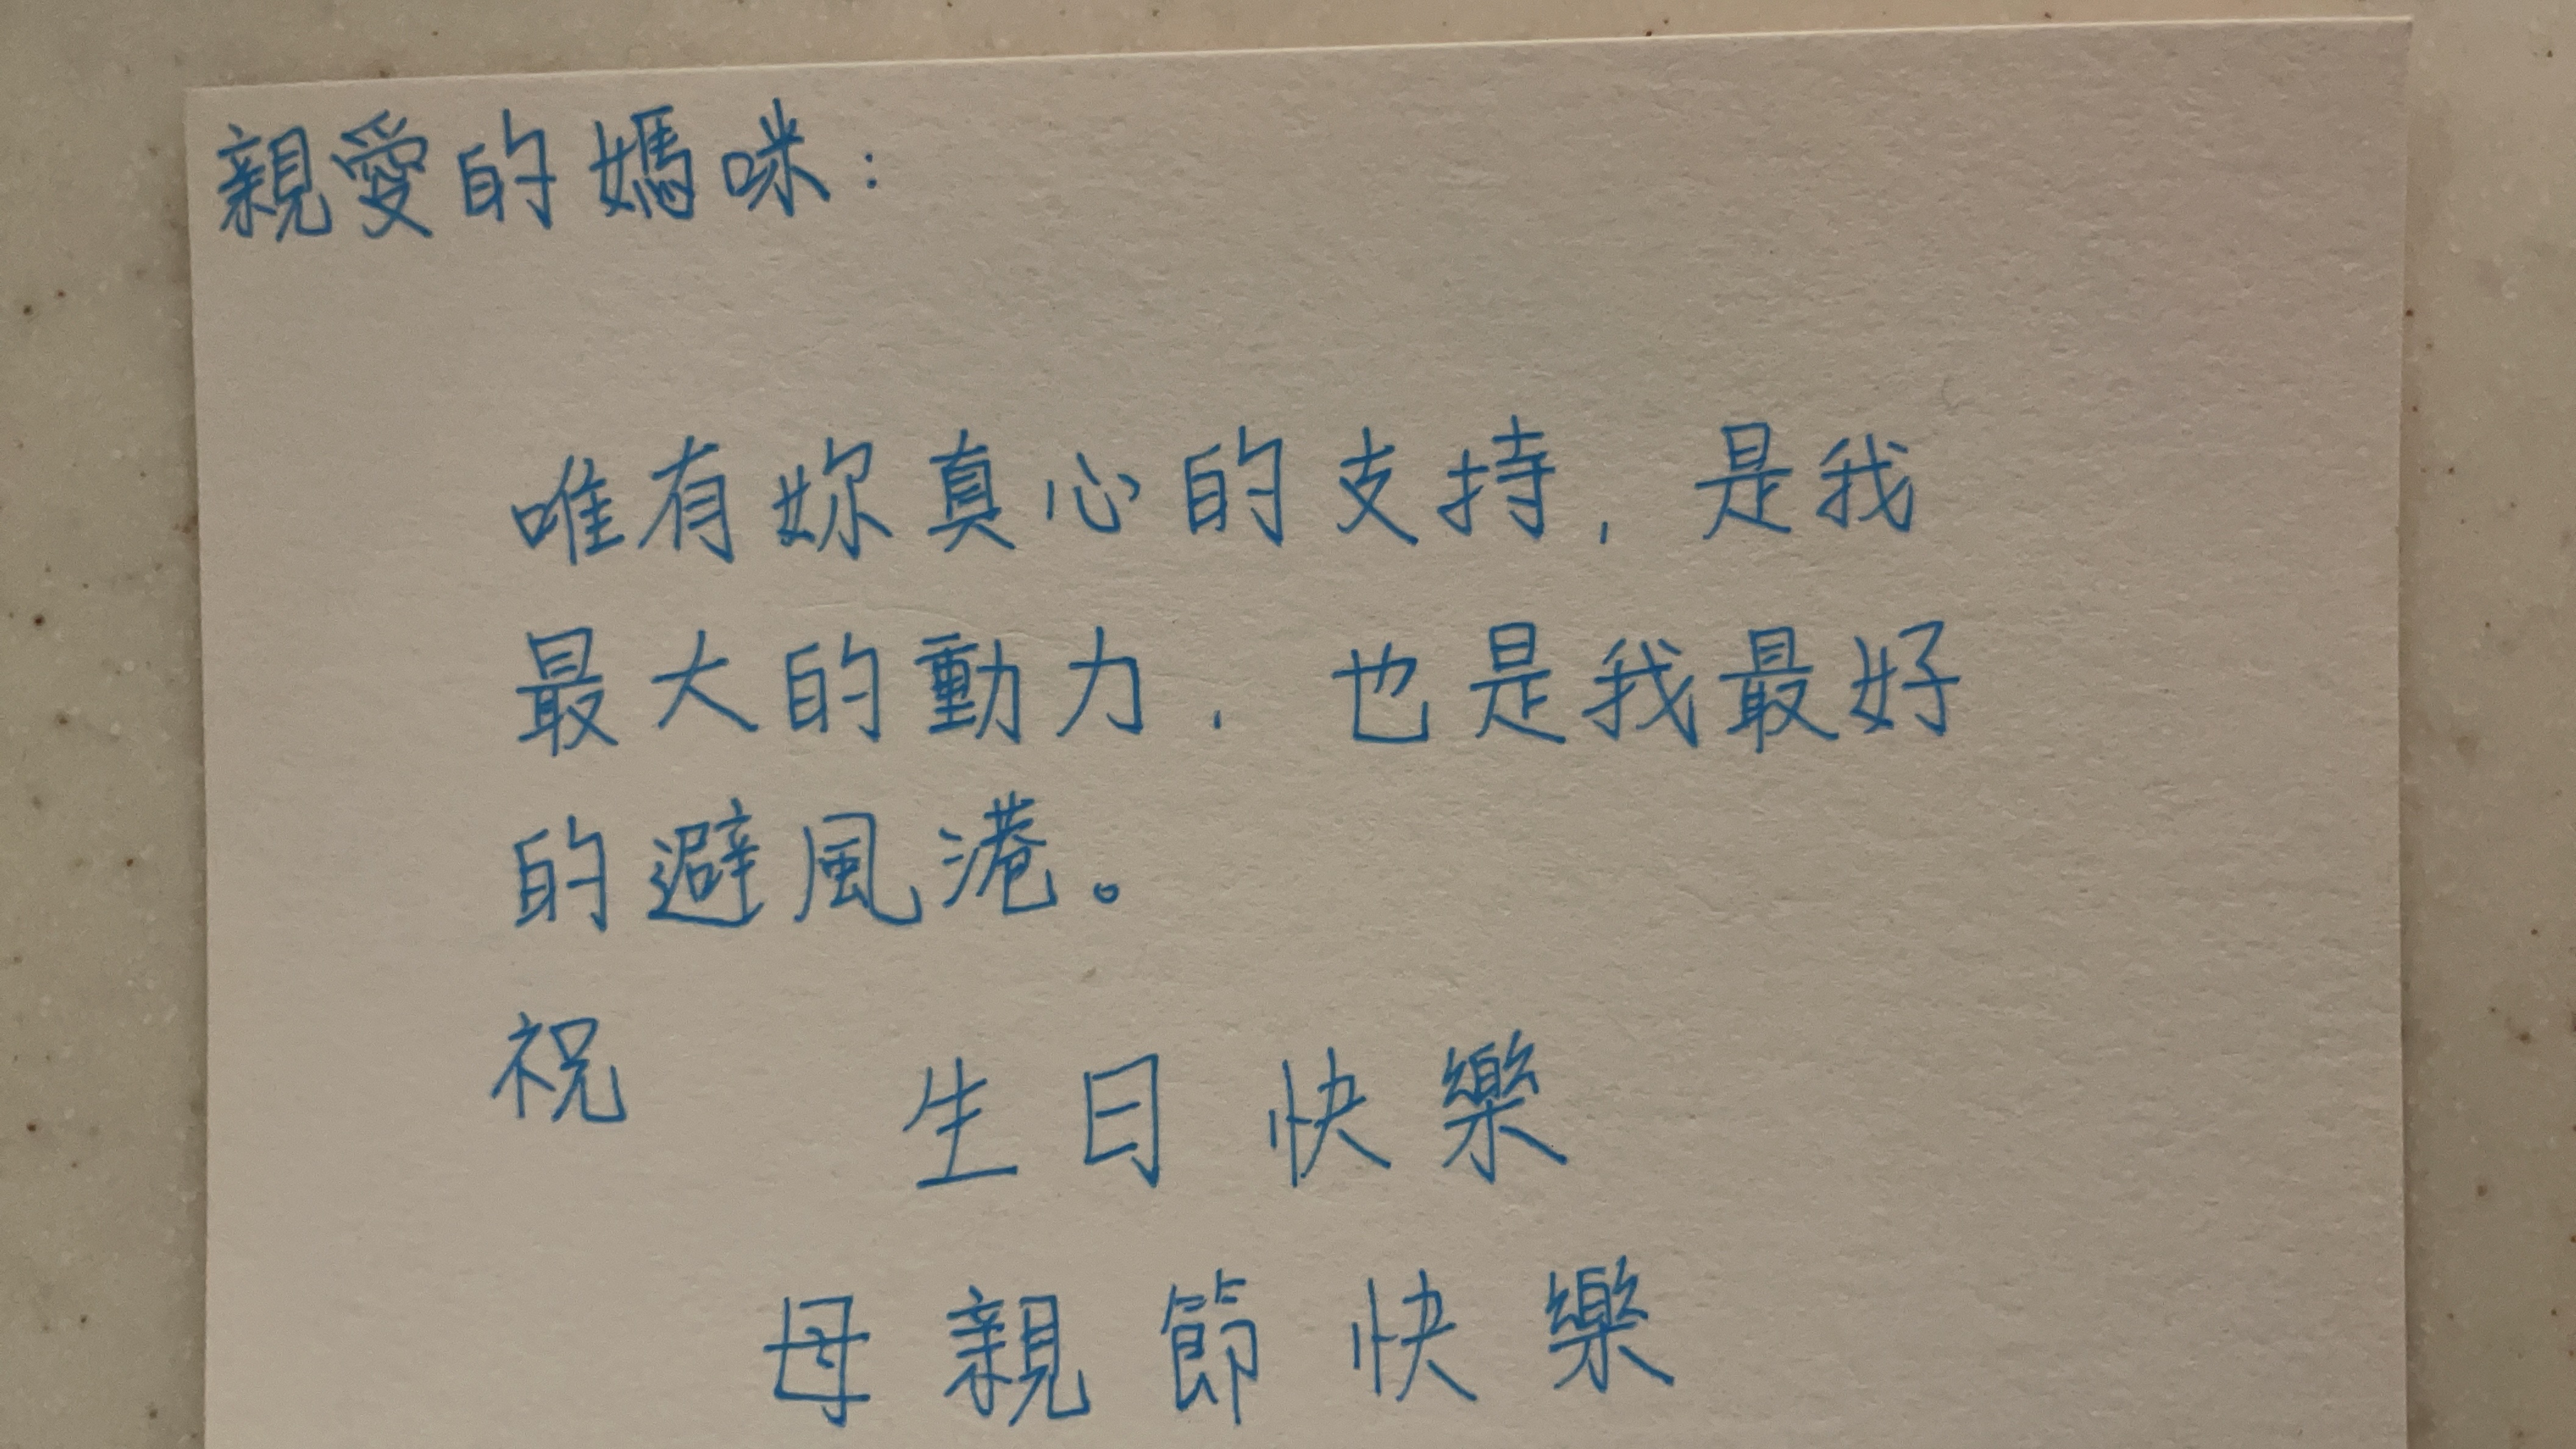 親愛的媽咪：
唯有妳真心的支持，是我
最大的動力，也是我最好
的避風港。
祝
生日快樂
母親節快樂